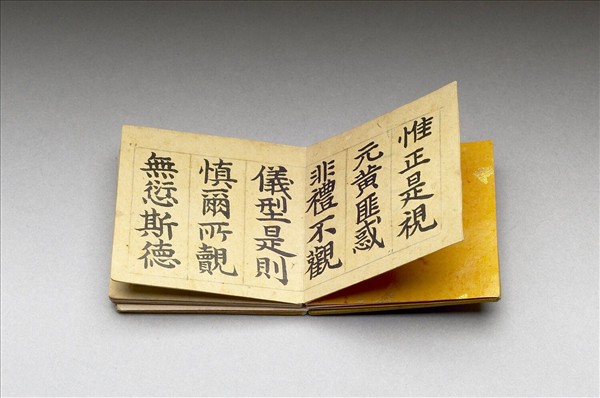 惟正是視
元黄匪惑
非禮不觀
儀型是則
慎爾所覿
無愆斯德